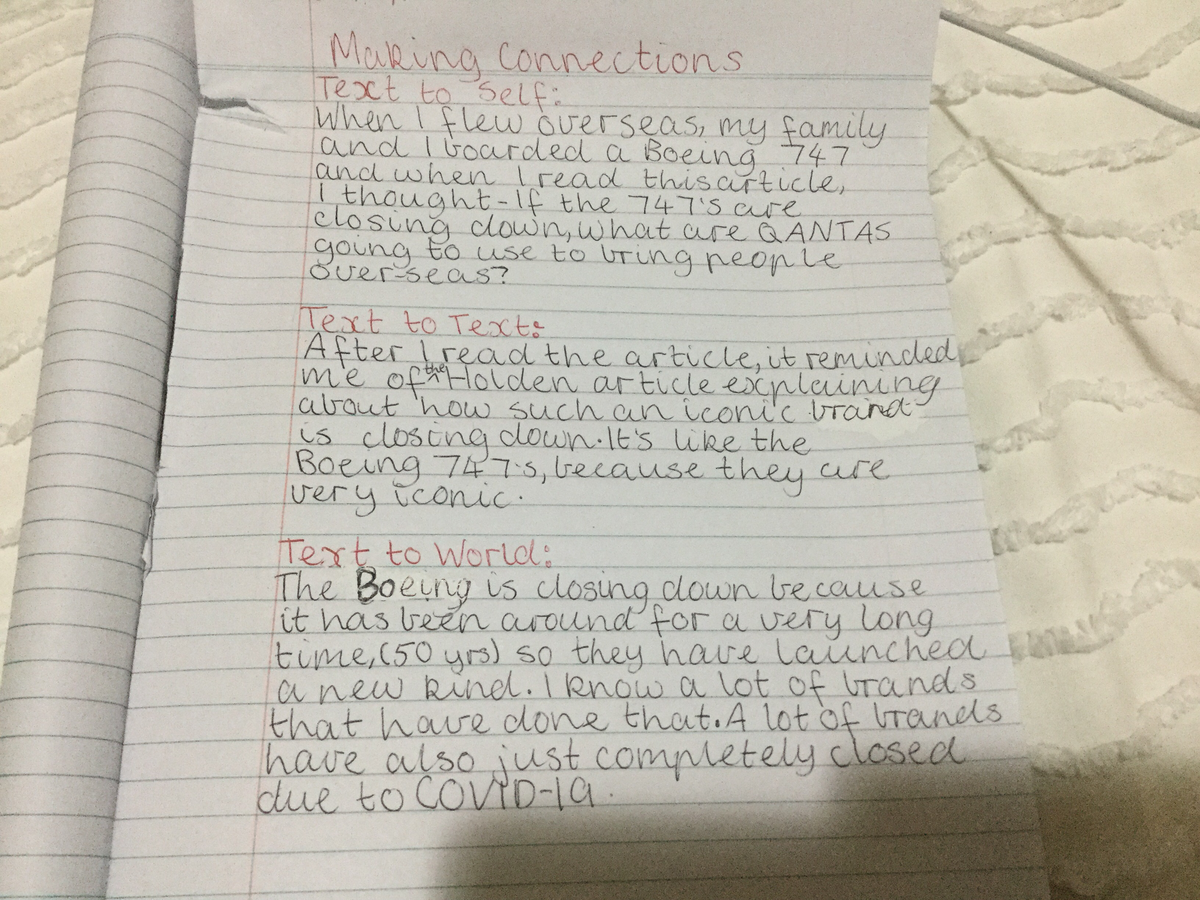 Making Connections
Text to Self:
When I flew overseas, my family
and I boarded a Boeing 747
and when I read this article,
I thought-If the 747's are
closing down, what are QANTAS
going to use to bring people
over-seas?
Text to Text:
After I read the article, it reminded
me of the Holden article explaining
about how such an iconic brand
is closing down. It's like the
Boeing 747's, because they are
very iconic.
Text to World:
The Boeing is closing down because
it has been around for a very long
time, (50 yrs) so they have launched
a new kind. I know a lot of brands
that have done that. A lot of brands
have also just completely closed
due to COVID-19.